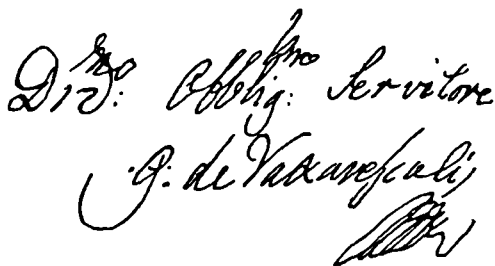 Div:mo Obblig:mo Servitore
G: de Vaccarescalis